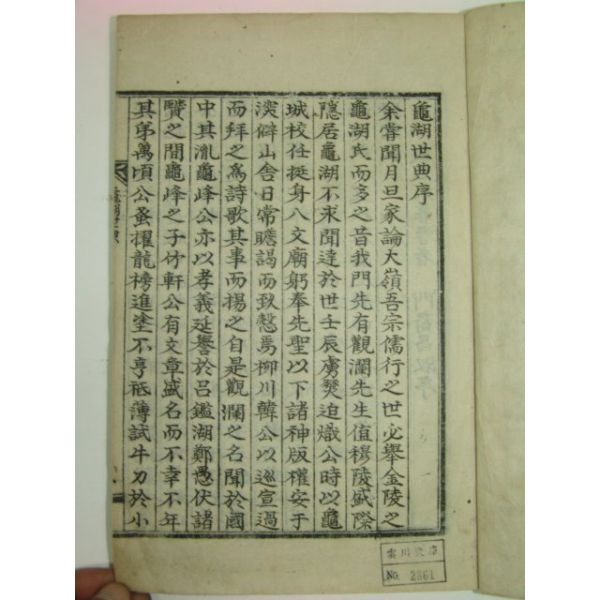 龜湖世典序
余嘗聞月旦家論大嶺吾宗儒行之世必舉金陵之
龜湖氏而多之昔我門先有觀瀾先生值穆陵盛際
隱居龜湖不求聞達於世壬辰虜燹迫熾公時以龜
城校任挺身入文廟躬奉先聖以下諸神版權安于
深僻山舍日常瞻謁而致慤焉柳川韓公以巡宣過
而拜之爲詩歌其事而揚之自是觀瀾之名聞於國
中其胤龜峰公亦以孝義延譽於呂鑑湖鄭愚伏諸
賢之間龜峰之子竹軒公有文章盛名而不幸不年
其弟萬頃公蚤擢龍榜進塗不亨祗薄試牛刀於小
No. 2361